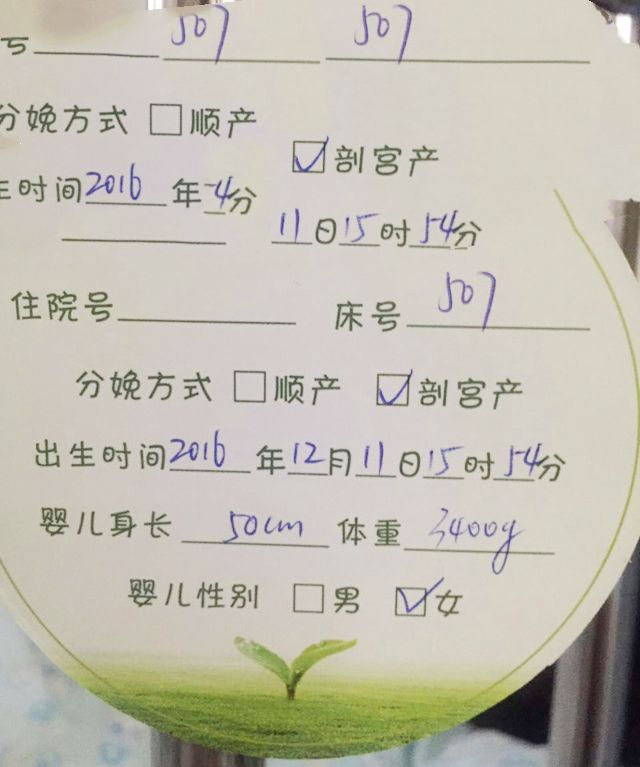 507 507
分娩方式 □ 顺产
☑ 剖宫产
生时间2016年 4分
11日15时54分
住院号 床号 507
分娩方式 □ 顺产 ☑ 剖宫产
出生时间2016年12月11日15时54分
婴儿身长 50cm 体重 3400g
婴儿性别 □ 男 ☑ 女